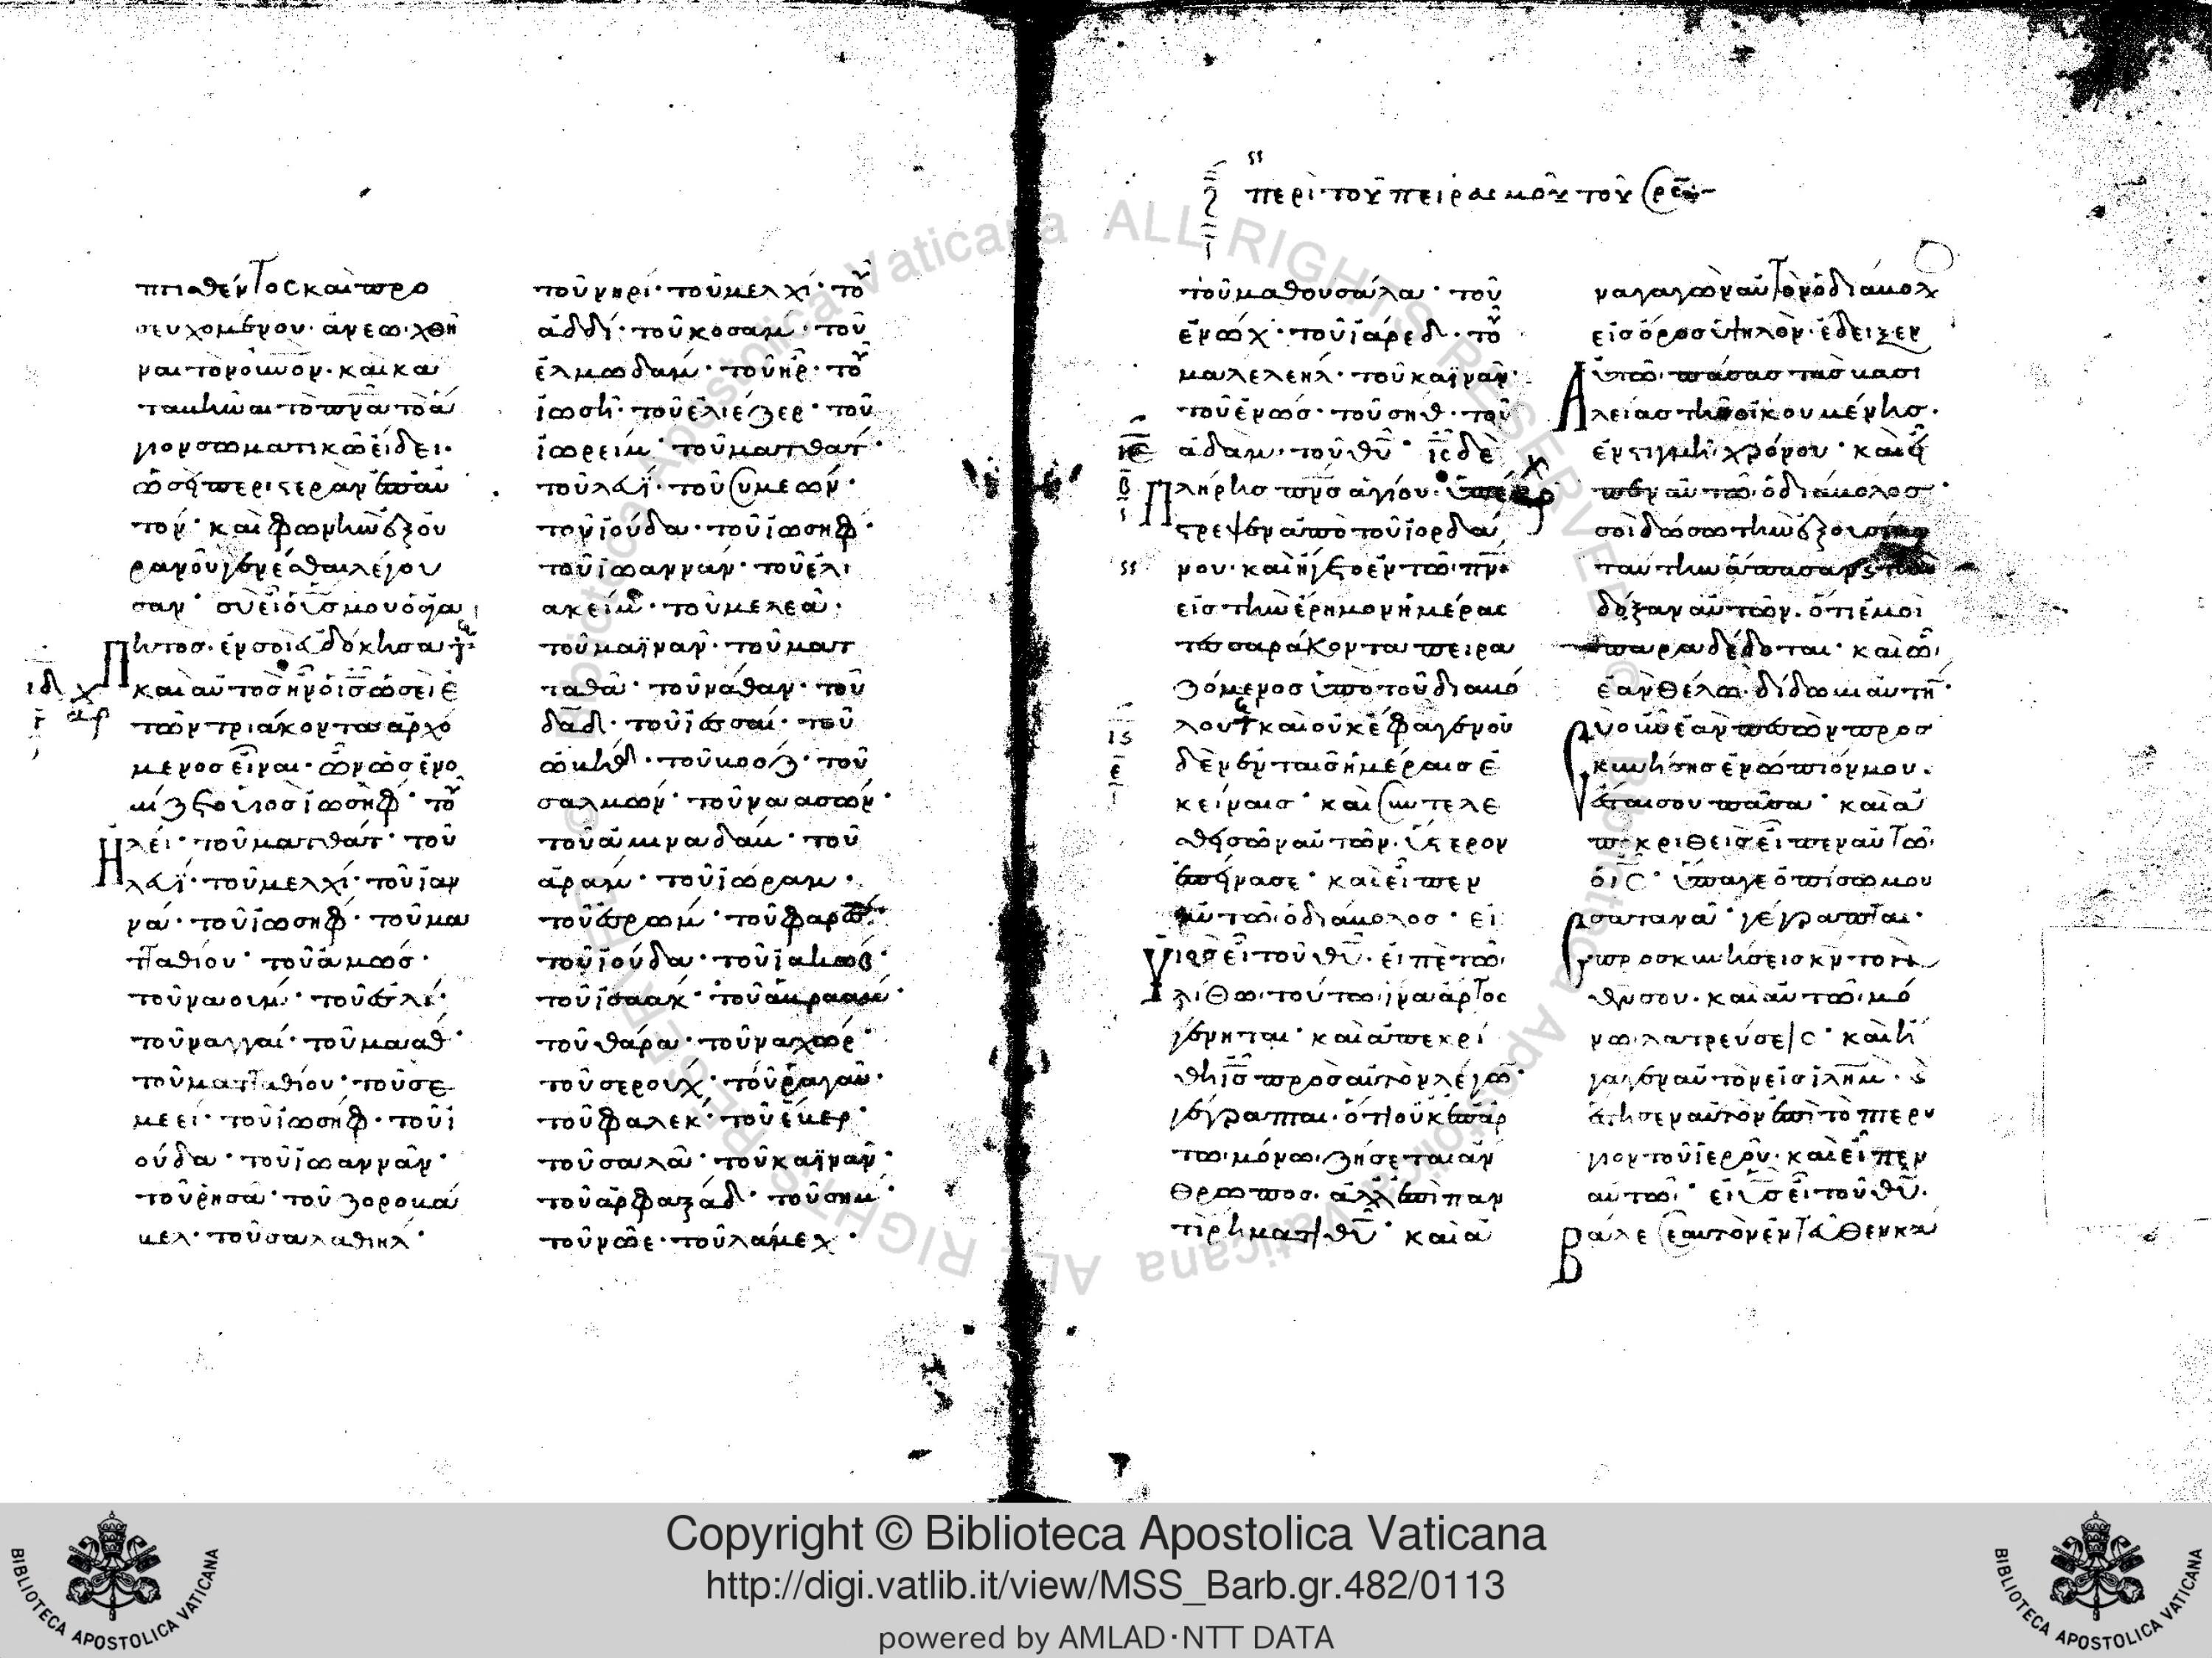 πτισθέντος καὶ προ
σευχομένου· ἀνεωχθῆ
ναι τὸν οὐνον· καὶ κα
ταβῆναι τὸ πνα τὸ ἅ
γιον σωματικῶ εἴδει·
ὡσεὶ περιστερὰν ἐπ' αὐ
τόν· καὶ φωνὴν ἐξ οὐ
ρανοῦ γενέσθαι λέγου
σαν· σὺ εἶ ὁ υἱς μου ὁ ἀγα
πητὸς· ἐν σοὶ εὐδόκησα
καὶ αὐτὸς ἦν ὁ ις ὡσεὶ ἐ
τῶν τριάκοντα ἀρχό
μενος εἶναι· ὢν ὡς ἐνο
μίζετο υἱὸς ἰωσὴφ· τοῦ
ἠλεί· τοῦ ματθάτ· τοῦ
λευΐ· τοῦ μελχί· τοῦ ἰαν
νά· τοῦ ἰωσήφ· τοῦ μα
τταθίου· τοῦ ἀμώς·
τοῦ ναούμ· τοῦ ἐσλί·
τοῦ ναγγαί· τοῦ μαάθ·
τοῦ ματταθίου· τοῦ σε
μεεί· τοῦ ἰωσήφ· τοῦ ἰ
ούδα· τοῦ ἰωαννάν·
τοῦ ῥησά· τοῦ ζοροβά
βελ· τοῦ σαλαθιήλ·
τοῦ νηρί· τοῦ μελχί· τοῦ
ἀδδί· τοῦ κοσάμ· τοῦ
ἐλμωδάμ· τοῦ ἤρ· τοῦ
ἰωσή· τοῦ ἐλιέζερ· τοῦ
ἰωρείμ· τοῦ ματθάτ·
τοῦ λευΐ· τοῦ συμεών·
τοῦ ἰούδα· τοῦ ἰωσήφ·
τοῦ ἰωαννάν· τοῦ ἐλι
ακείμ· τοῦ μελεᾶ·
τοῦ μαϊνάν· τοῦ ματ
ταθά· τοῦ νάθαν· τοῦ
δαδ· τοῦ ἰεσσαί· τοῦ
ὠβήδ· τοῦ βοόζ· τοῦ
σαλμών· τοῦ ναασσών·
τοῦ ἀμιναδάμ· τοῦ
ἀράμ· τοῦ ἰωράμ·
τοῦ ἐσρώμ· τοῦ φαρὲς·
τοῦ ἰούδα· τοῦ ἰακώβ·
τοῦ ἰσαάκ· τοῦ ἀβραάμ·
τοῦ θάρα· τοῦ ναχώρ·
τοῦ σερούχ· τοῦ ῥαγαῦ·
τοῦ φαλέκ· τοῦ ἔβερ·
τοῦ σαλά· τοῦ καϊνάν·
τοῦ ἀρφαξάδ· τοῦ σήμ·
τοῦ νῶε· τοῦ λάμεχ·
περὶ τοῦ πειρασμοῦ τοῦ
τοῦ μαθουσάλα· τοῦ
ἐνώχ· τοῦ ἰάρεδ· τοῦ
μαλελεήλ· τοῦ καϊνάν·
τοῦ ἐνώς· τοῦ σήθ· τοῦ
ἀδάμ· τοῦ θυ· ις δὲ
πλήρης πνς ἁγίου·
στρεψεν ἀπὸ τοῦ ἰορδά
νου· καὶ ἤγετο ἐν τῶ πνι
εἰς τὴν ἔρημον ἡμέρας
τεσσαράκοντα πειρα
ζόμενος ὑπὸ τοῦ διαβό
λου καὶ οὐκ ἔφαγεν οὐ
δὲν ἐν ταῖς ἡμέραις ἐ
κείναις· καὶ συντελε
σθεισῶν αὐτῶν· ὕστερον
ἐπείνασε· καὶ εἶπεν
αὐτῶ ὁ διάβολος· εἰ
υἱὸς εἶ τοῦ θυ· εἰπὲ τῶ
λίθω τούτω ἵνα ἄρτος
γένηται· καὶ ἀπεκρί
θη ις πρὸς αὐτὸν λέγων·
γέγραπται· ὅτι οὐκ ἐπ' ἄρ
τω μόνω ζήσεται ἄν
θρωπος· ἀλλ' ἐπὶ παν
τὶ ῥήματι θυ· καὶ ἀ
ναγαγὼν αὐτὸν ὁ διάβολος
εἰς ὄρος ὑψηλὸν· ἔδειξεν
αὐτῶ πάσας τὰς βασι
λείας τῆς οἰκουμένης·
ἐν στιγμῆ χρόνου· καὶ εἶ
πεν αὐτῶ ὁ διάβολος·
σοὶ δώσω τὴν ἐξουσίαν
ταύτην ἅπασαν καὶ τὴν
δόξαν αὐτῶν· ὅτι ἐμοὶ
παραδέδοται· καὶ ὧ
ἐὰν θέλω δίδωμι αὐτήν·
σὺ οὖν ἐὰν πεσὼν προσ
κυνήσης ἐνώπιόν μου·
ἔσται σου πᾶσα· καὶ ἀ
ποκριθεὶς εἶπεν αὐτῶ
ὁ ις· ὕπαγε ὀπίσω μου
σατανᾶ· γέγραπται·
προσκυνήσεις κν τὸν
θν σου· καὶ αὐτῶ μό
νω λατρεύσεις· καὶ ἤ
γαγεν αὐτὸν εἰς ιλημ· καὶ
ἔστησεν αὐτὸν ἐπὶ τὸ πτερύ
γιον τοῦ ἱεροῦ· καὶ εἶπεν
αὐτῶ· εἰ υς εἶ τοῦ θυ·
βάλε σεαυτὸν ἐντεῦθεν κά
Copyright © Biblioteca Apostolica Vaticana
http://digi.vatlib.it/view/MSS_Barb.gr.482/0113
powered by AMLAD·NTT DATA
BIBLIOTECA APOSTOLICA VATICANA
BIBLIOTECA APOSTOLICA VATICANA